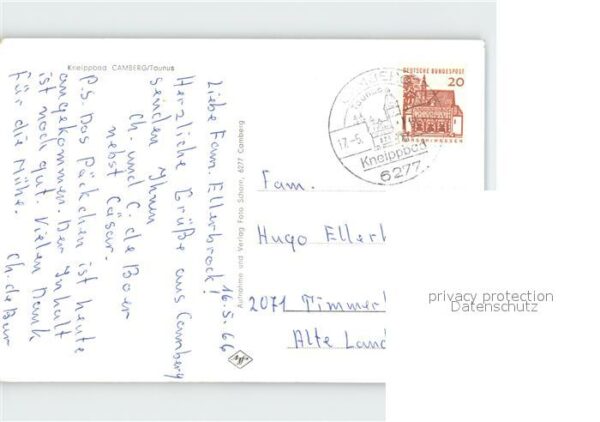 Kneippbad CAMBERG/Taunus
16.5.66
Liebe Fam. Ellerbrock!
Herzliche Grüße aus Camberg
senden Ihnen
Ch. und C. de Boer
nebst Cäsar.
P.S. Das Päckchen ist heute
angekommen. Der Inhalt
ist noch gut. Vielen Dank
für die Mühe.
Ch. de Boer
Aufnahme und Verlag Foto Schorn, 6277 Camberg
DEUTSCHE BUNDESPOST
20
17.-5.
Kneippbad
6277
Fam.
Hugo Ellerb
2071 Timmer
Alte Land
privacy protection
Datenschutz